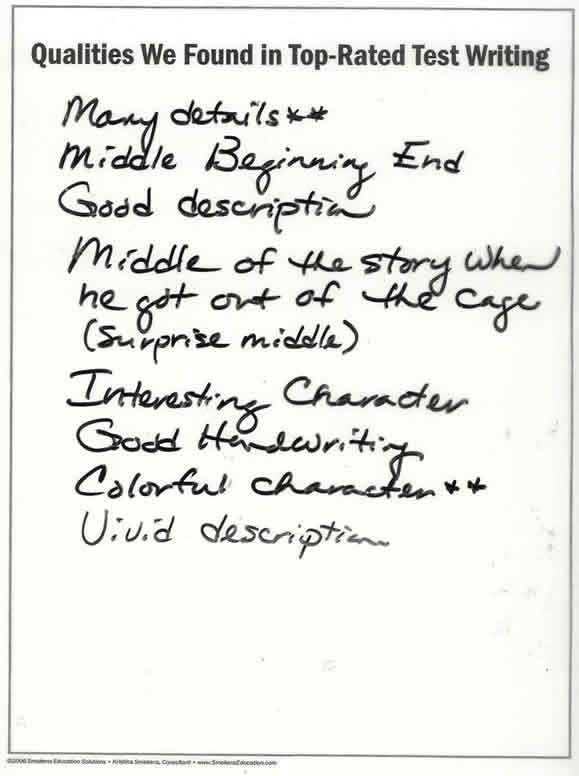 Qualities We Found in Top-Rated Test Writing
Many details**
Middle Beginning End
Good description
Middle of the story when
he got out of the cage
(Surprise middle)
Interesting Character
Good Handwriting
Colorful character**
Vivid description
©2006 Smekens Education Solutions • Kristina Smekens, Consultant • www.SmekensEducation.com